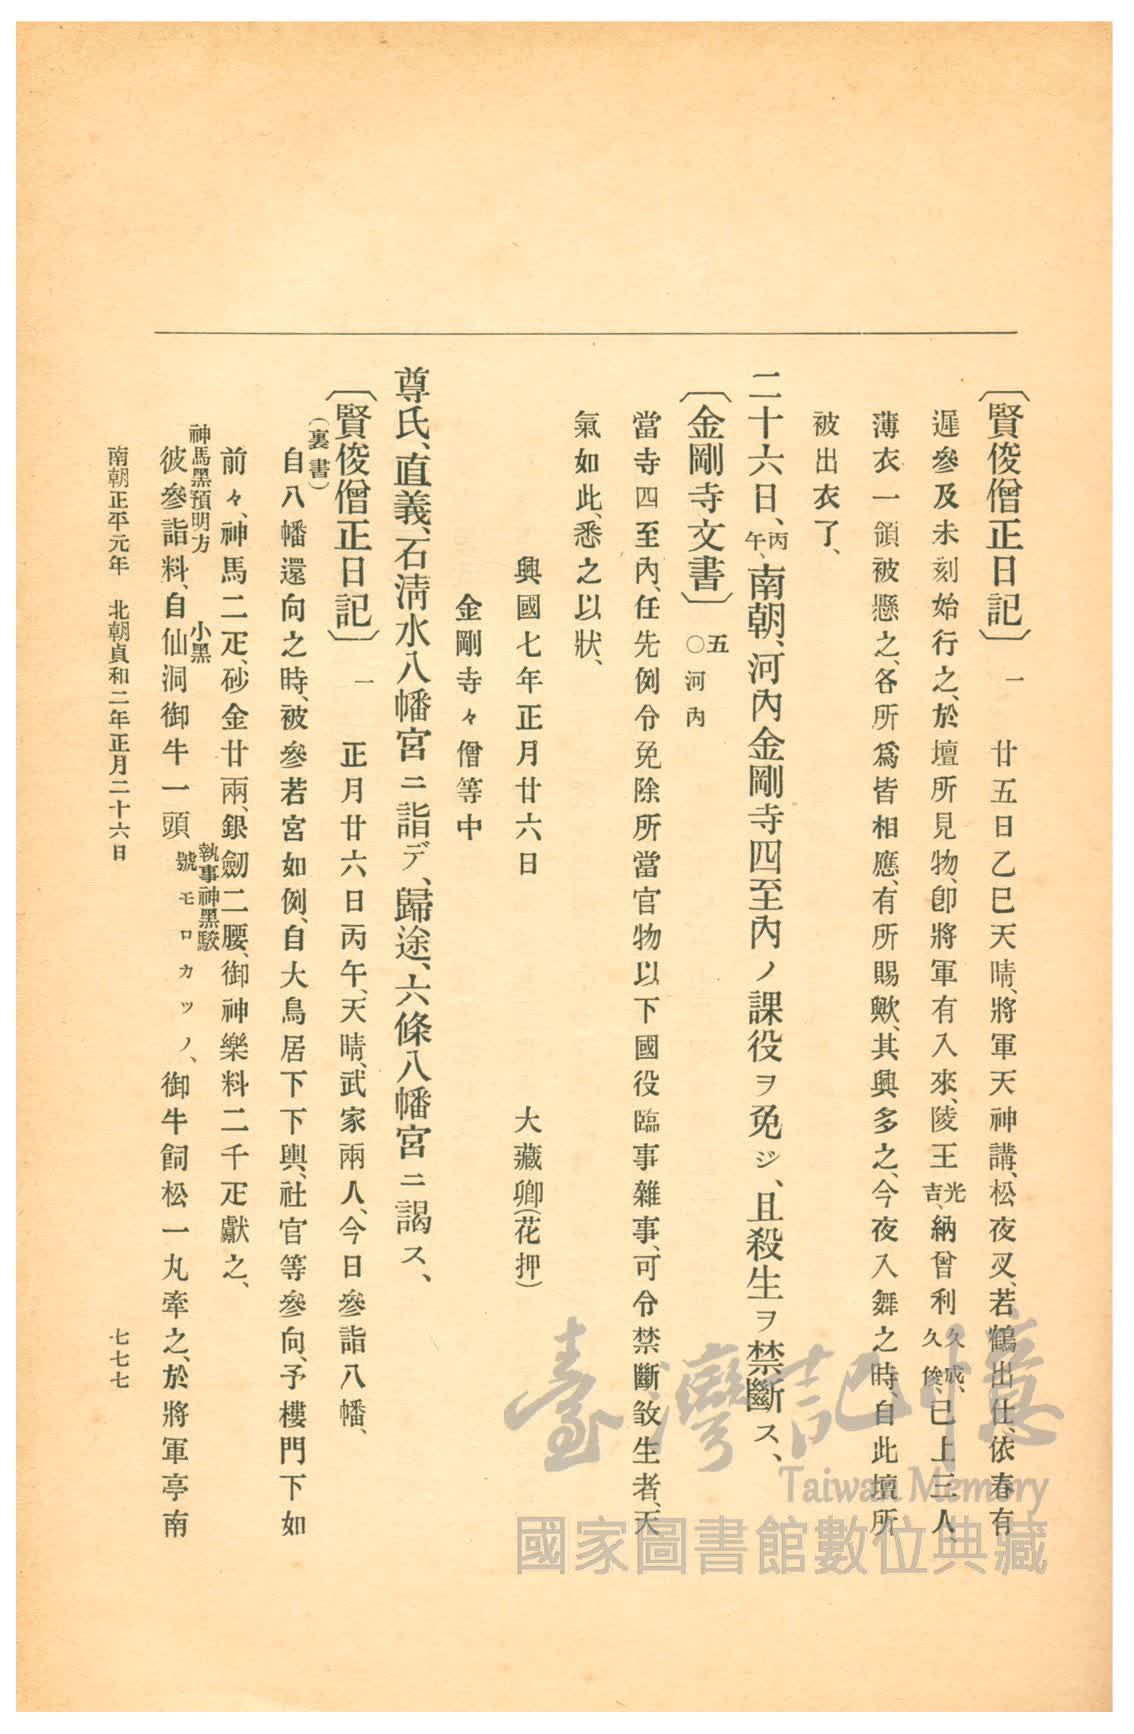 〔賢俊僧正日記〕一　廿五日乙巳天晴、將軍天神講、松夜叉、若鶴出仕、依春有
遲參及未刻始行之、於壇所見物、卽將軍有入來、陵王光吉、納曾利久成、久俊、已上三人、
薄衣一領被懸之、各所爲皆相應、有所賜歟、其興多之、今夜入舞之時、自此壇所
被出衣了、
二十六日、丙午、南朝、河內金剛寺四至內ノ課役ヲ免ジ、且殺生ヲ禁斷ス、
〔金剛寺文書〕五〇河內
當寺四至內、任先例令免除所當官物以下國役臨事雜事、可令禁斷敓生者、天
氣如此、悉之以狀、
興國七年正月廿六日　大藏卿(花押)
金剛寺々僧等中
尊氏、直義、石淸水八幡宮ニ詣デ、歸途、六條八幡宮ニ謁ス、
〔賢俊僧正日記〕一　正月廿六日丙午、天晴、武家兩人、今日參詣八幡、
(裏書)
自八幡還向之時、被參若宮如例、自大鳥居下下輿、社官等參向、予樓門下如
前々、神馬二疋、砂金廿兩、銀劒二腰、御神樂料二千疋獻之、
神馬黑預明方　小黑　執事神黑駮
彼參詣料、自仙洞御牛一頭號モロカツノ、御牛飼松一丸牽之、於將軍亭南
南朝正平元年　北朝貞和二年正月二十六日
七七七
臺灣記憶
Taiwan Memory
國家圖書館數位典藏